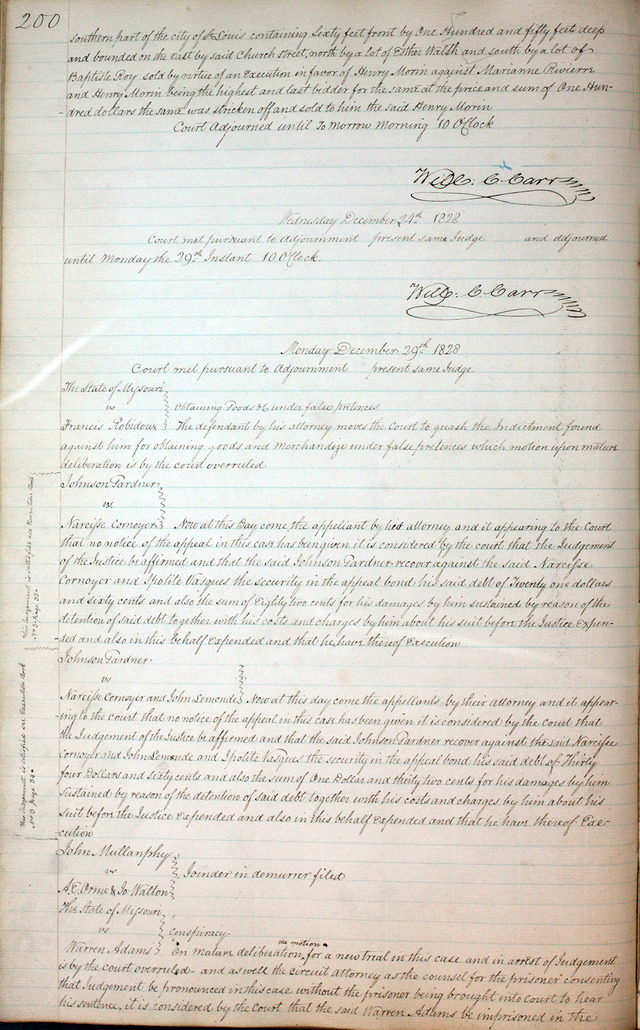 200
southern part of the city of St Louis containing Sixty feet front by One Hundred and fifty feet deep
and bounded on the east by said Church street, north by a lot of Esther Walsh and south by a lot of
Baptiste Roy sold by virtue of an Execution in favor of Henry Morin against Marianne Rivierre
and Henry Morin being the highest and last bidder for the same at the price and sum of One Hun-
-dred dollars the same was stricken off and sold to him the said Henry Morin
Court Adjourned until To Morrow Morning 10 OClock
Will. C Carr
Wednesday December 24th 1828
Court met pursuant to Adjournment present same Judge and adjourned
until Monday the 29th Instant 10 OClock.
Will. C Carr
Monday December 29th 1828
Court met pursuant to Adjournment present same Judge
The State of Missouri
vs obtaining Goods &c under false pretences
Francis Robidoux The defendant by his attorney moves the Court to quash the Indictment found
against him for obtaining goods and Merchandize under false pretences which motion upon mature
deliberation is by the court overruled
Johnson Pardner
vs
Narcisse Cornoyer Now at this Day come the appellant by his attorney and it appearing to the Court
that no notice of the appeal in this case has been given it is considered by the court that the Judgement
of the Justice be affirmed and that the said Johnson Pardner recover against the said Narcisse
Cornoyer and Ipolite Vasques the security in the appeal bond his said debt of Twenty one dollars
and sixty cents and also the sum of Eighty two cents for his damages by him sustained by reason of the
detention of said debt together with his costs and charges by him about his suit before the Justice Expen-
-ded and also in this behalf expended and that he have thereof Execution
This Judgement is satisfied see Execution Book
No 3 page 33
Johnson Pardner
vs
Narcisse Cornoyer and John Lemonde Now at this day come the appellants by their attorney and it appear-
ing to the court that no notice of the appeal in this case has been given it is considered by the court that
the Judgement of the Justice be affirmed and that the said Johnson Pardner recover against the said Narcisse
Cornoyer and John Lemonde and Ipolite Vasques the security in the appeal bond his said debt of Thirty
four Dollars and sixty cents and also the sum of One Dollar and thirty two cents for his damages by him
sustained by reason of the detention of said debt together with his costs and charges by him about his
suit before the Justice Expended and also in this behalf expended and that he have thereof Exe-
cution
This Judgement is satisfied see Execution Book
No 3 page 34
John Mullanphy
vs Joinder in demurrer filed
A. E. Orme & Jo Walton
The State of Missouri
vs conspiracy
Warren Adams On mature deliberation the motion for a new trial in this case and in arrest of Judgement
is by the court overruled - and as well the circuit attorney as the counsel for the prisoner consenting
that Judgement be pronounced in this case without the prisoner being brought into court to hear
his sentence, it is considered by the Court that the said Warren Adams be imprisoned in the